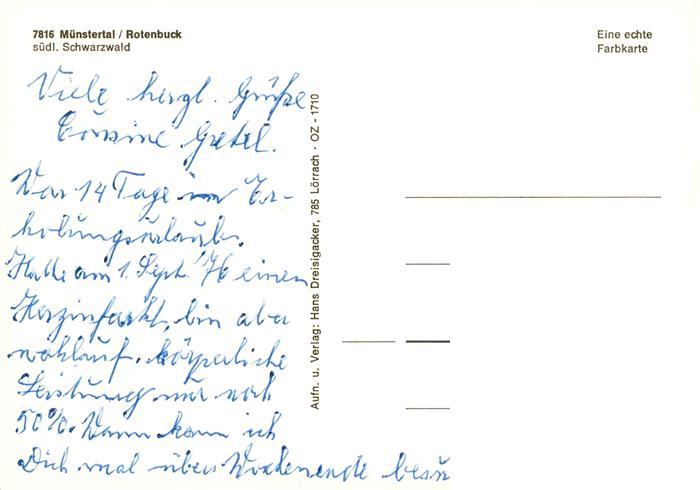 7816 Münstertal / Rotenbuck
südl. Schwarzwald
Eine echte
Farbkarte
Viele herzl. Grüße
Cousine Gretel.
War 14 Tage im Er-
holungsurlaub.
Hatte am 1. Sept. '76 einen
Herzinfarkt, bin aber
wohlauf, körperliche
Leistung nur noch
50%. Wann kann ich
Dich mal übers Wochenende besu
Aufn. u. Verlag: Hans Dreisigacker, 785 Lörrach · OZ - 1710